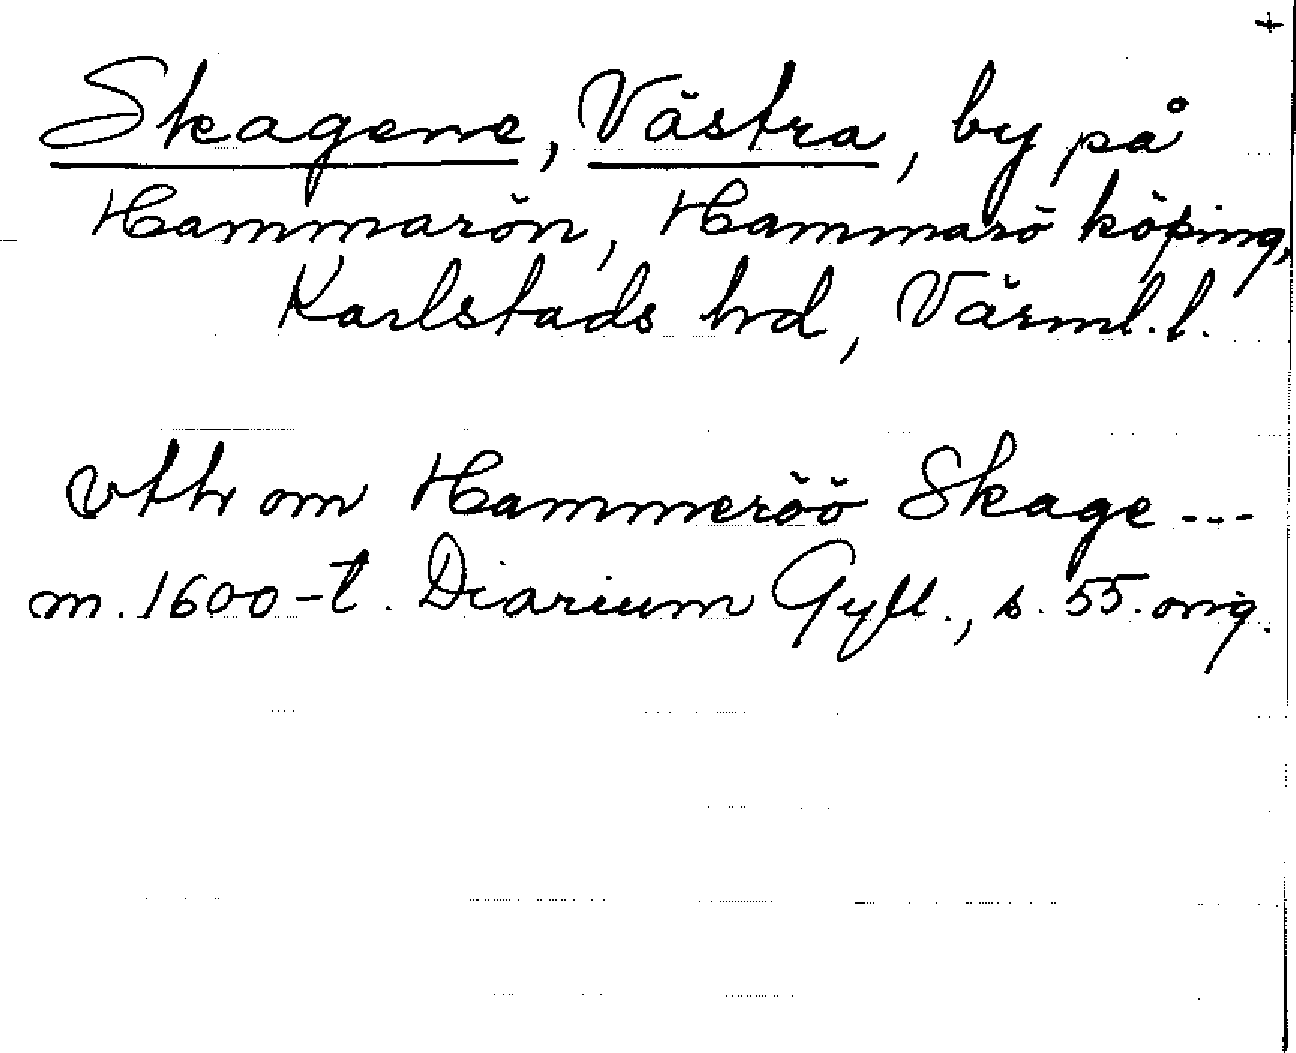 +
Skagene, Västra, by på
Hammarön, Hammarö köping,
Karlstads hd, Värml. l.
vthr om Hammeröö Skage ---
m. 1600-t. Diarium Gyll., s. 55. orig.